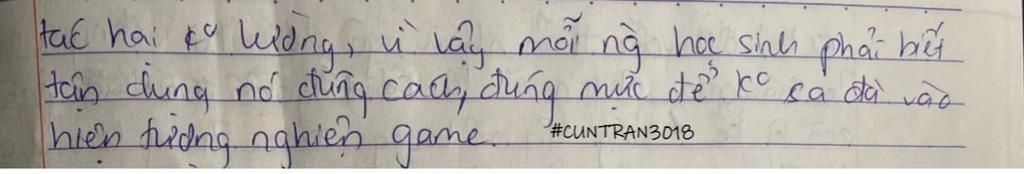 tác hại ko lường, vì vậy mỗi ng học sinh phải biết
tận dụng nó đúng cách, đúng mức để ko sa đà vào
hiện tượng nghiện game. #CUNTRAN3018